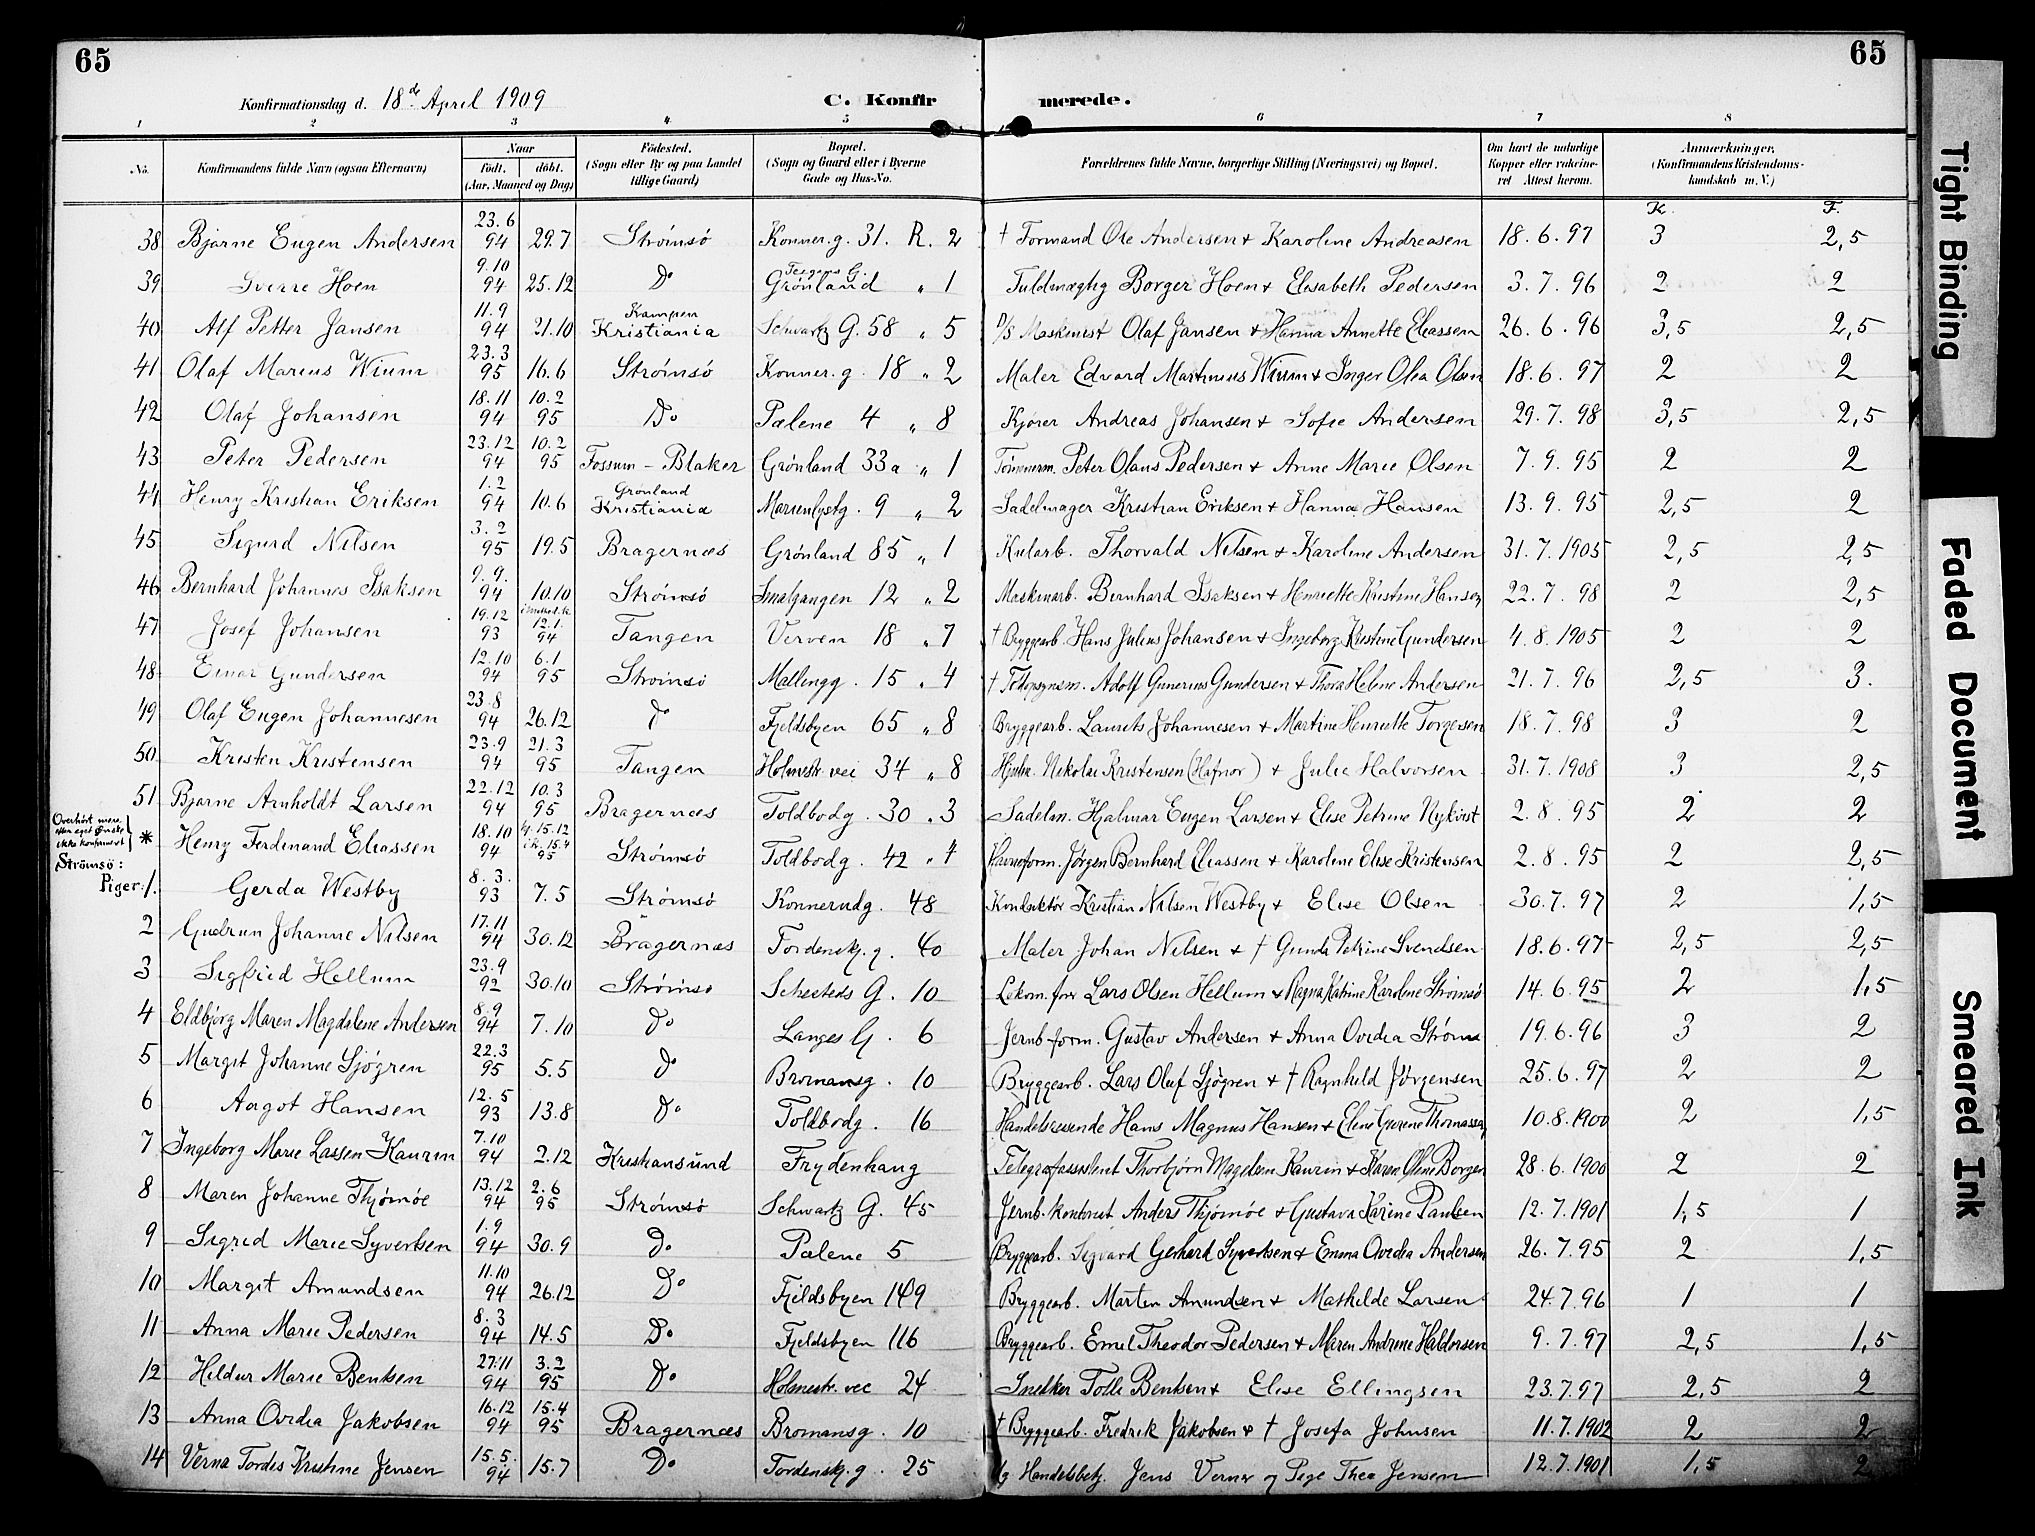 65
65
Konfirmationsdag d. 18de April 1909
C. Konfir merede.
1 2 3 4 5 6 7 8
No. Konfirmandens fulde Navn (ogsaa Efternavn) Naar født. døbt. (Aar, Maaned og Dag) Fødested. (Sogn eller By og paa Landet tillige Gaard) Bopæl. (Sogn og Gaard eller i Byerne Gade og Hus-No. Forældrenes fulde Navne, borgerlige Stilling (Næringsvei) og Bopæl. Om havt de naturlige Kopper eller vakcineret Attest herom. Anmærkninger, (Konfirmandens Kristendomskundskab m. V.)
K. F.
38 Bjarne Eugen Andersen 23.6 94 29.7 Strømsø Konner.g. 31. R. 2 † Formand Ole Andersen + Karoline Andreasen 18.6.97 3 2,5
39 Sverre Hoen 9.10 94 25.12 Do Grønland " 1 Fuldmægtig Borger Hoen + Elisabeth Pedersen 3.7.96 2 2
40 Alf Petter Jansen 11.9 94 21.10 Kampen Kristiania Schwartz G. 58 " 5 D/S Maskinist Olaf Jansen + Hanna Annette Eliassen 26.6.96 3,5 2,5
41 Olaf Marius Wium 23.3 95 16.6 Strømsø Konner.g. 18 " 2 Maler Edvard Martinius Wium + Inger Olea Olsen 18.6.97 2 2
42 Olaf Johansen 18.11 94 10.2 95 Do Pælene 4 " 8 Kjører Andreas Johansen + Sofie Andersen 29.7.98 3,5 2,5
43 Peter Pedersen 23.12 94 10.2 95 Fossum - Blaker Grønland 33a " 1 Tømmerm. Peter Olaus Pedersen + Anne Marie Olsen 7.9.95 2 2
44 Henry Kristian Eriksen 1.2 94 10.6 Grønland Kristiania Marienlystg. 9 " 2 Sadelmager Kristian Eriksen + Hanna Hansen 13.9.95 2,5 2
45 Sigurd Nilsen 3.2 95 19.5 Bragernæs Grønland 85 " 1 Kularb. Thorvald Nilsen + Karoline Andersen 31.7.1905 2,5 2,5
46 Bernhard Johannes Isaksen 9.9. 94 10.10 Strømsø Smalgangen 12 " 2 Maskinarb. Bernhard Isaksen + Henriette Kristine Hansen 22.7.98 2 2,5
47 Josef Johansen 19.12 93 12.1. 94 Tangen Verven 18 " 7 † Bryggearb. Hans Julius Johansen + Ingeborg Kristine Gundersen 4.8.1905 2 2
48 Einar Gundersen 12.10 94 6.1 95 Strømsø Mallingg. 15 " 4 † Adolf Gunerius Gundersen + Thora Helene Andersen 21.7.96 2,5 3.
49 Olaf Eugen Johannesen 23.8 94 26.12 Do Fjeldsbyen 65 " 8 Bryggearb. Laurits Johannesen + Martine Henriette Torgersen 18.7.98 3 2
50 Kristen Kristensen 23.9 94 21.3 95 Tangen Holmestr. vei 34 " 8 Nikolai Kristensen (Hafnor) + Julie Halvorsen 31.7.1908 3 2,5
51 Bjarne Arnholdt Larsen 22.12 94 10.3 95 Bragernæs Toldbodg. 30 " 3 Sadelm. Hjalmar Eugen Larsen + Elise Petrine Nykvist 2.8.95 2 2
Overhørt men efter eget Ønske ikke konfirmert } * Henry Ferdinand Eliassen 18.10 94 15.12 15.4 95 Strømsø Toldbodg. 42 " 4 Havneform. Jørgen Bernhard Eliassen + Karoline Elise Kristensen 2.8.95 2 2,5
Strømsø:
Piger: 1. Gerda Westby 8.3. 93 7.5 Strømsø Konnerudg. 48 Konduktør Kristian Nilsen Westby + Elise Olsen 30.7.97 2 1,5
2 Gudrun Johanne Nilsen 17.11 94 30.12 Bragernæs Tordenskj.g. 40 Maler Johan Nilsen + † Gunda Petrine Svendsen 18.6.97 2,5 2,5
3 Sigfrid Hellum 23.9 92 30.10 Strømsø Schesteds G. 10 Lokom.fører Lars Olsen Hellum + Ragna Katrine Karoline Strømsø 14.6.95 2 1,5
4 Eldbjørg Maren Magdalene Andersen 8.9 94 7.10 Do Langes G. 6 Jernb.form. Gustav Andersen + Anna Ovidia Strøm 19.6.96 3 2
5 Margit Johanne Sjögren 22.3 95 5.5 Do Bromansg. 10 Bryggearb. Lars Oluf Sjögren + † Ragnhild Jörgensen 25.6.97 2 2
6 Aagot Hansen 12.5 93 13.8 Do Toldbodg. 16 Handelsreisende Hans Magnus Hansen + Eline Thomassen 10.8.1900 2 1,5
7 Ingeborg Marie Lassen Kaurin 7.10 94 2.12 Kristiansund Frydenhaug Telegrafassistent Thorbjørn Magelsen Kaurin + Karen Oline Borgen 28.6.1900 2 2
8 Maren Johanne Thjømøe 13.12 94 2.6 95 Strømsø Schwartz G. 45 Jernb.kontorist Anders Thjømøe + Gustava Karine Paulsen 12.7.1901 1,5 1
9 Sigrid Marie Syvertsen 1.9 94 30.9 Do Pælene 5 Bryggearb. Sigvard Gerhard Syvertsen + Emma Ovidia Andersen 26.7.95 2 1,5
10 Margit Amundsen 11.10 94 26.12 Do Fjeldsbyen 149 Bryggearb. Martin Amundsen + Mathilde Larsen 24.7.96 1 1
11 Anna Marie Pedersen 8.3 94 14.5 Do Fjeldsbyen 116 Bryggearb. Emil Theodor Pedersen + Maren Andrine Haldorsen 9.7.97 2,5 1,5
12 Hildur Marie Bentsen 27.11 94 3.2 95 Do Holmestr. vei 24 Snedker Tolle Bentsen + Elise Ellingsen 23.7.97 2,5 2
13 Anna Ovidia Jakobsen 16.12 94 15.4 95 Bragernæs Bromansg. 10 † Bryggearb. Fredrik Jakobsen + † Josefa Johnsen 11.7.1902 2 2
14 Verna Tordis Kristine Jensen 15.5. 94 15.7 Do Tordenskj.g. 25 Handelsbetj. Jens Verner og Pige Thea Jensen 12.7.1901 1,5 2
Tight Binding
Faded Document
Smeared Ink